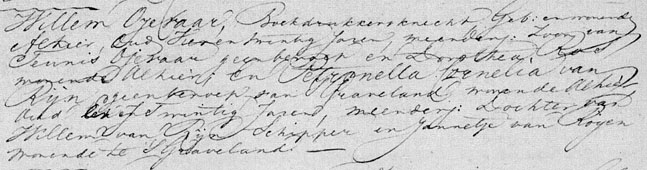 Willem Ogeraar, Boekdrukkersknecht, Geb: en wonende
Alhier, Oud Vier en twintig Jaren, meerderj: Zoon van
Teunis Ogeraar geen beroep en Dorothea
wonende Alhier; en Petronella Cornelia van
Rijn geen beroep van 'sGraveland wonende Alhier
Oud Twintig Jaren, meenderj: Dochter van
Willem van Rijn Schipper en Jannetje van Rooyen
wonende te 'sGraveland. —